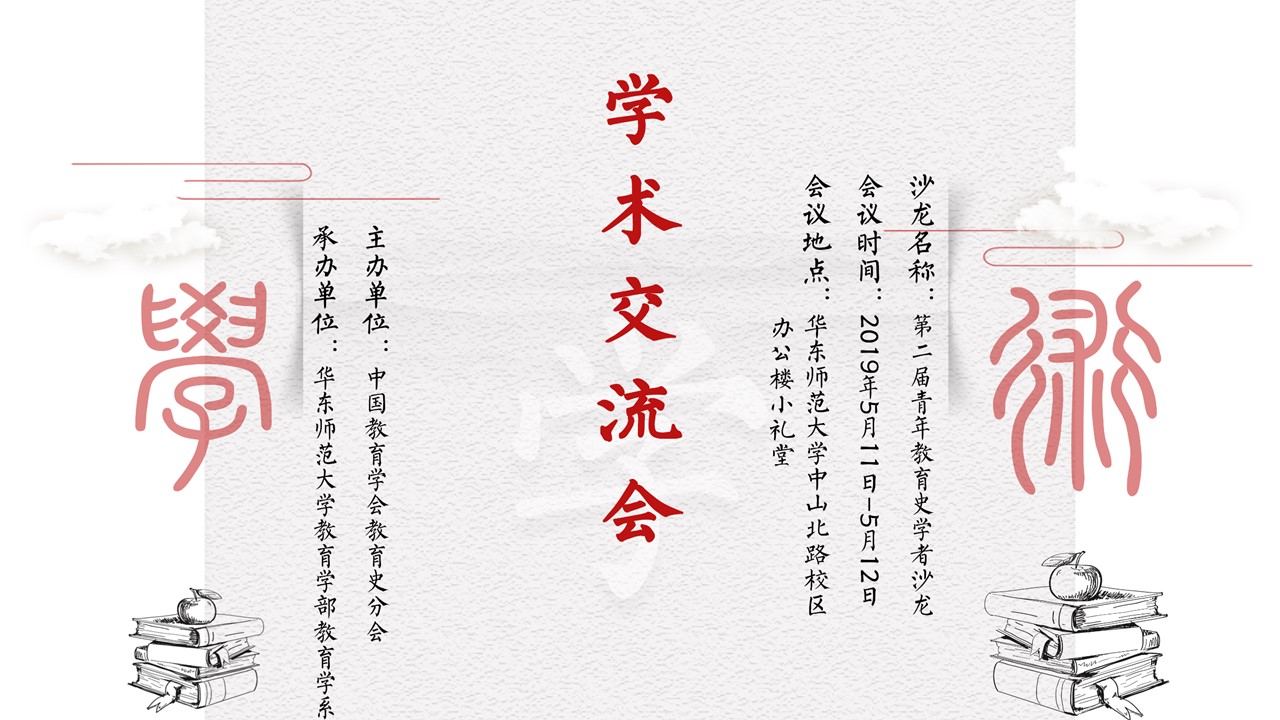 学术交流会
沙龙名称：第二届青年教育史学者沙龙
会议时间：2019年5月11日-5月12日
会议地点：华东师范大学中山北路校区
办公楼小礼堂
主办单位：中国教育学会教育史分会
承办单位：华东师范大学教育学部教育学系
術
學
学